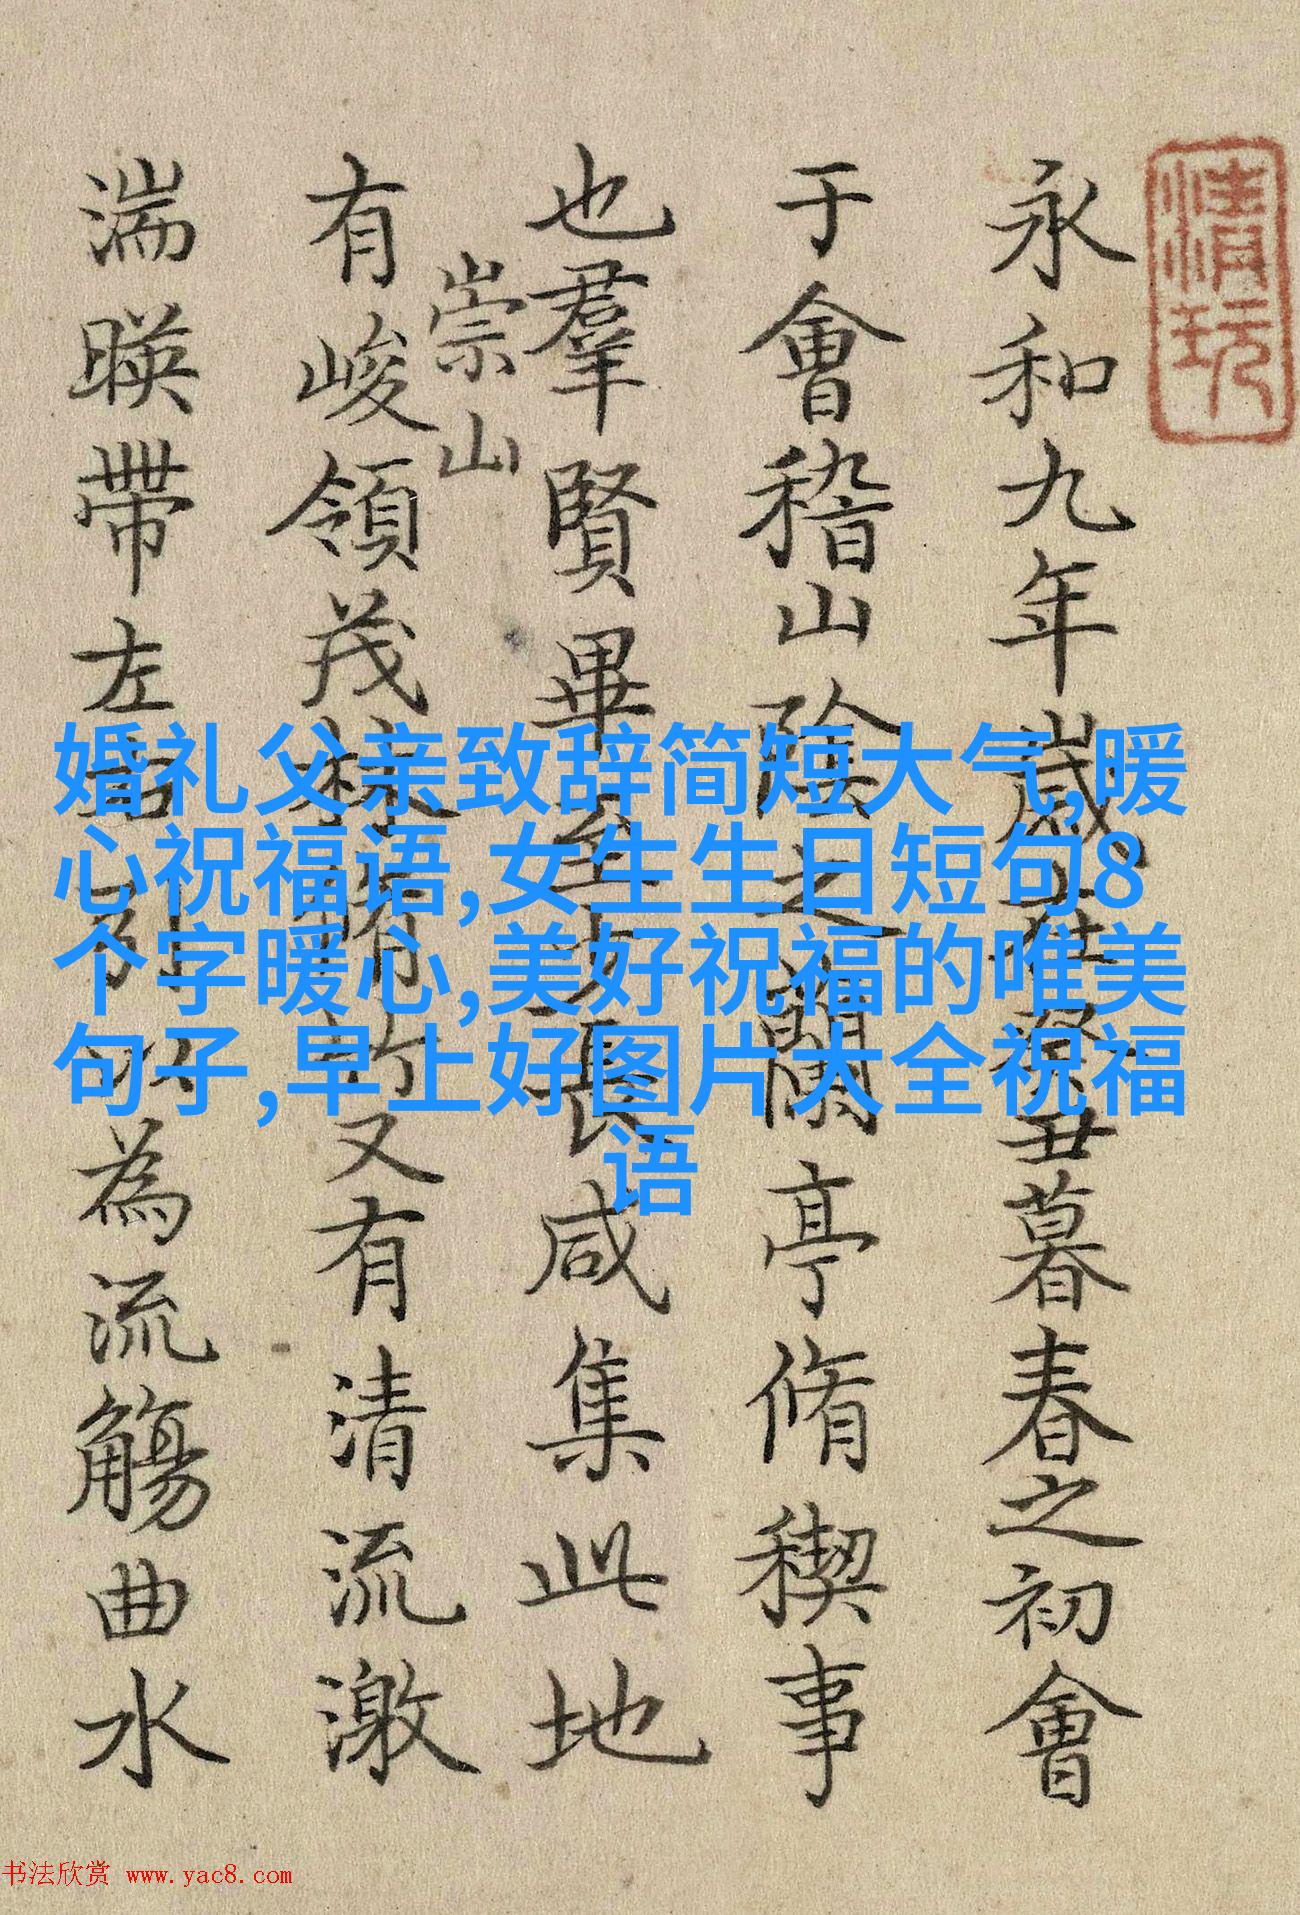 清玩
永和九年歲在癸丑暮春之初會
于會稽山陰之蘭亭脩稧事
也羣賢畢至少長咸集此地
崇山
有峻領茂林脩竹又有清流激
湍暎帶左右引以為流觴曲水
婚礼父亲致辞简短大气,暖
心祝福语,女生生日短句8
个字暖心,美好祝福的唯美
句子,早上好图片大全祝福
语
书法欣赏 www.yac8.com